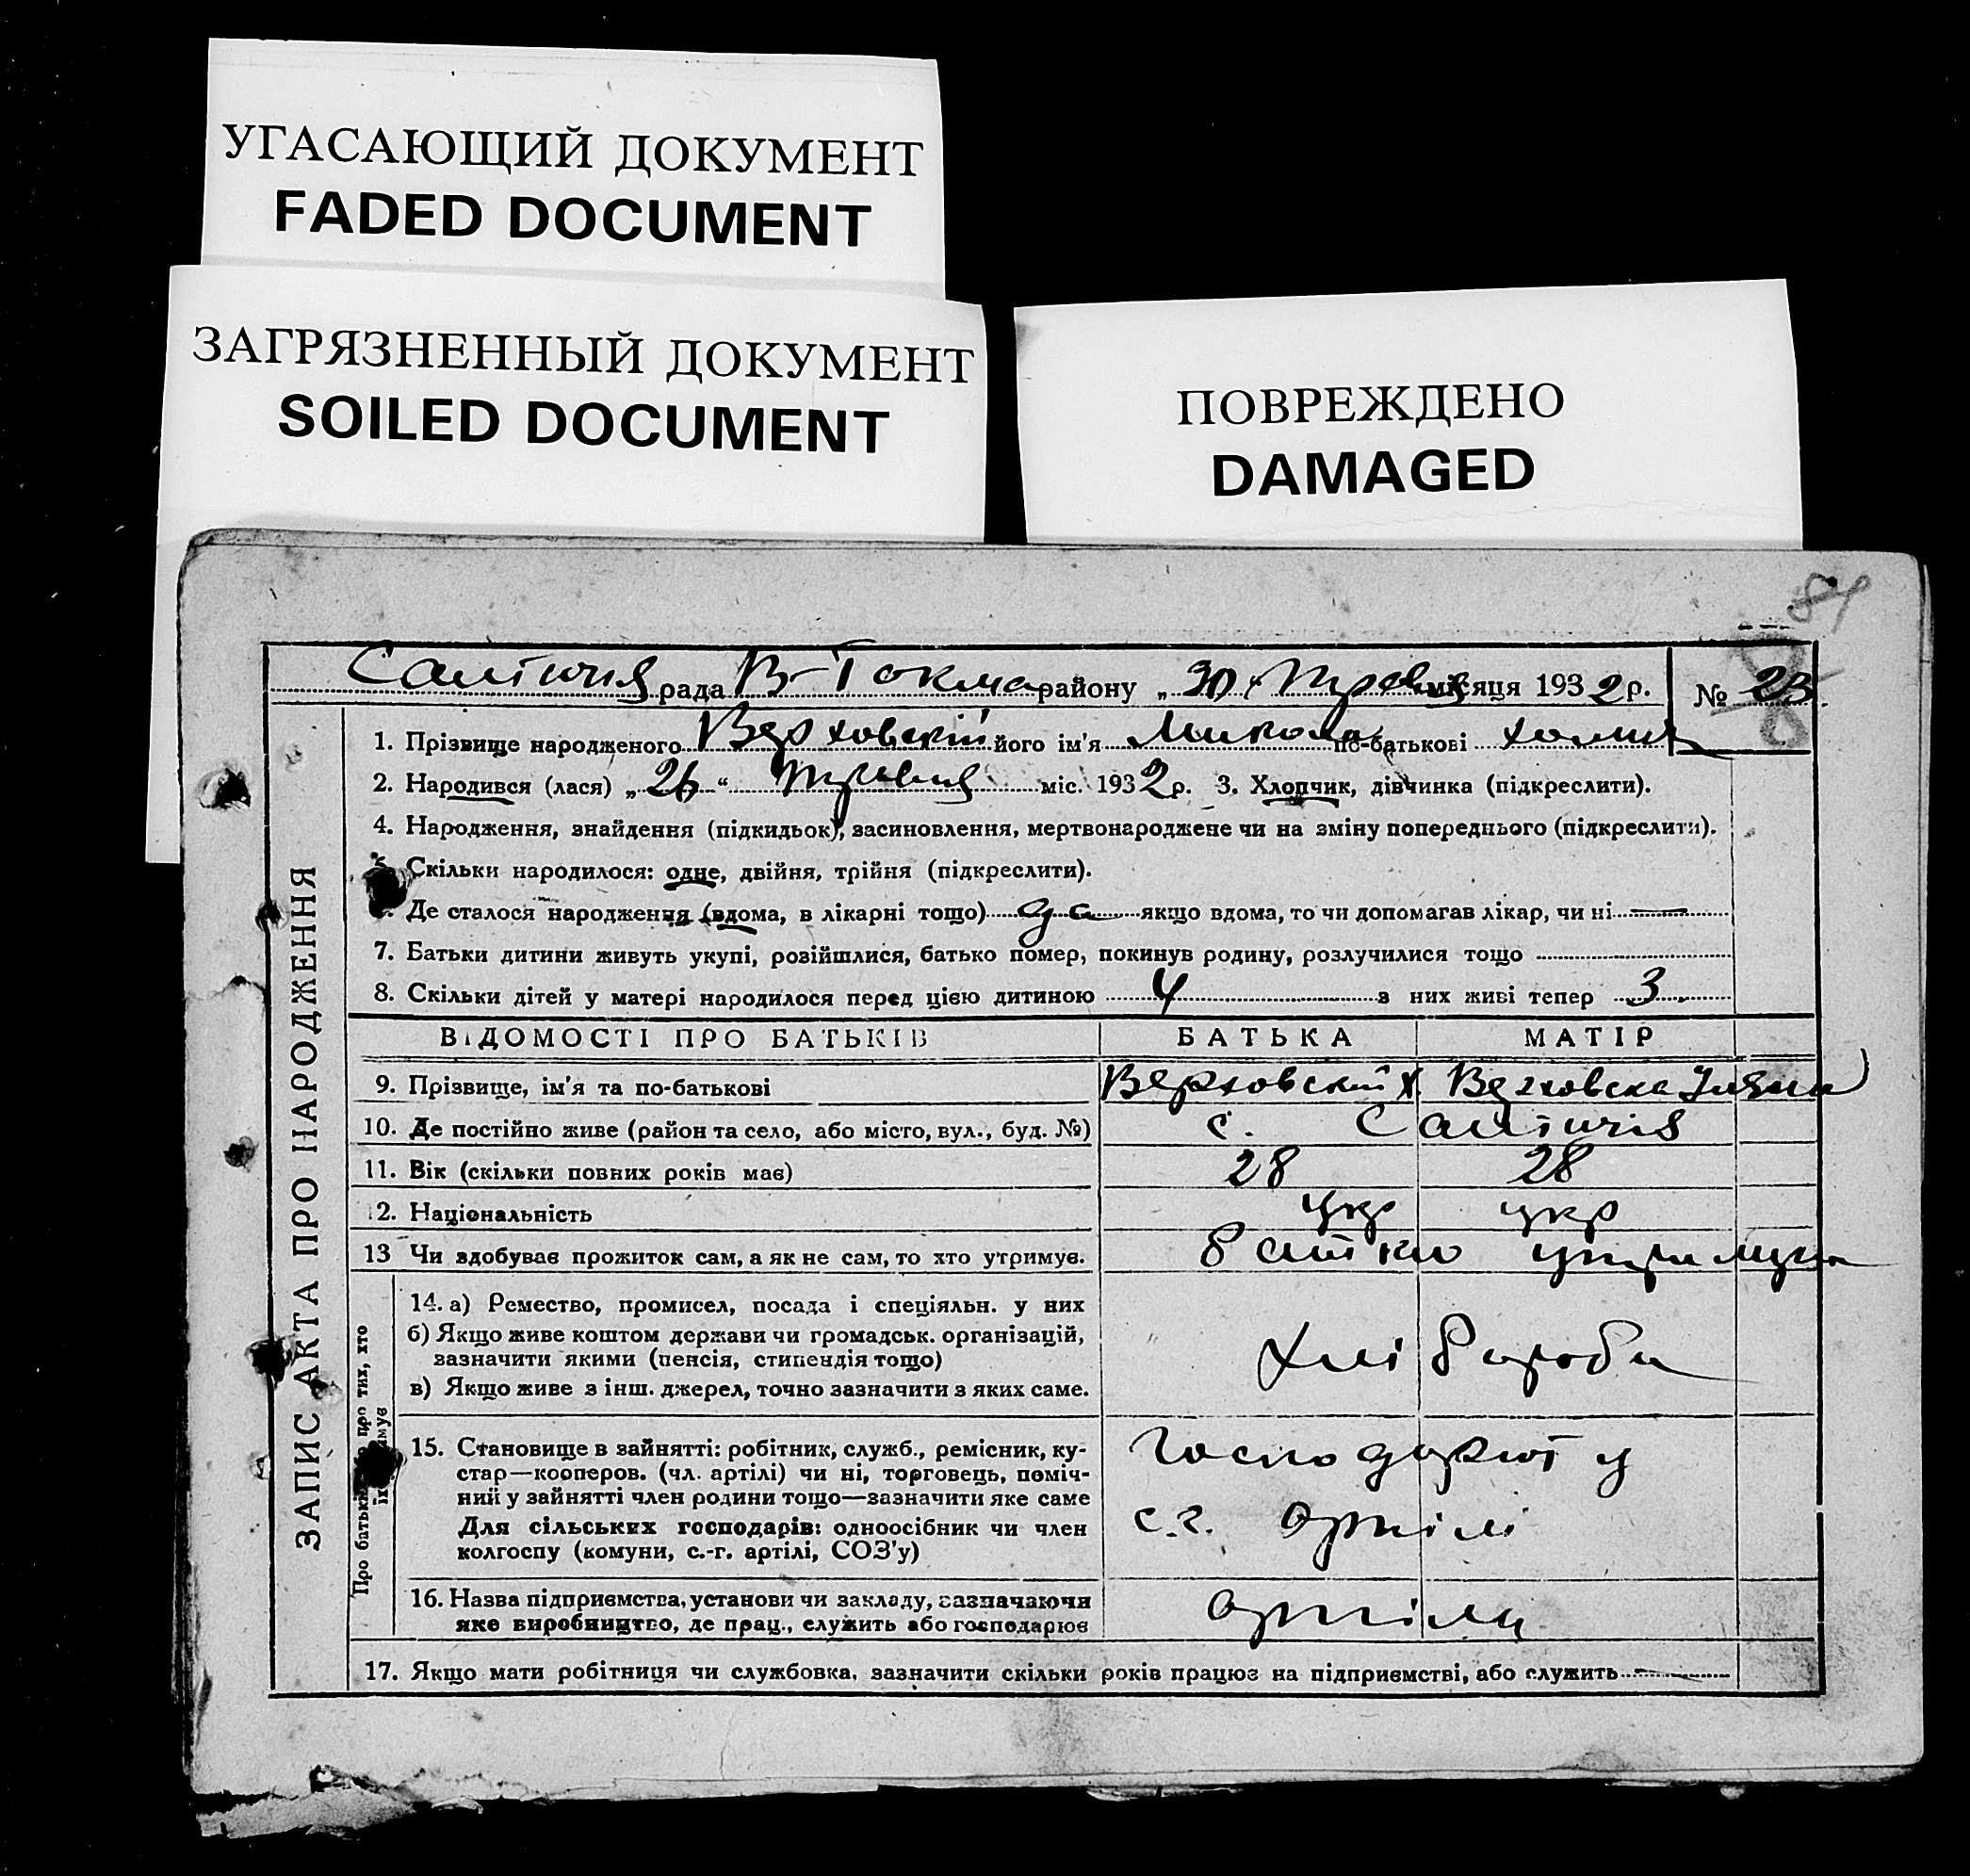 УГАСАЮЩИЙ ДОКУМЕНТ
FADED DOCUMENT
ЗАГРЯЗНЕННЫЙ ДОКУМЕНТ
SOILED DOCUMENT
ПОВРЕЖДЕНО
DAMAGED
84
Салтичия рада В-Токма району „30“ Травня місяця 1932 р. № 23
1. Прізвище народженого Верховский його ім'я Микола по-батькові
2. Народився (лася) „26“ Травня міс. 1932 р. 3. Хлопчик, дівчинка (підкреслити).
4. Народження, знайдення (підкидьок), засиновлення, мертвонароджене чи на зміну попереднього (підкреслити).
5. Скільки народилося: одне, двійня, трійня (підкреслити).
Де сталося народження (вдома, в лікарні тощо) да якщо вдома, то чи допомагав лікар, чи ні —
7. Батьки дитини живуть укупі, розійшлися, батько помер, покинув родину, розлучилися тощо
8. Скільки дітей у матері народилося перед цією дитиною 4 з них живі тепер 3
ВІДОМОСТІ ПРО БАТЬКІВ БАТЬКА МАТІР
9. Прізвище, ім'я та по-батькові Верховский Х. Верховска Уляна
10. Де постійно живе (район та село, або місто, вул., буд. №) с. Салтичия
11. Вік (скільки повних років має) 28 28
12. Національність укр укр
13 Чи здобував прожиток сам, а як не сам, то хто утримує.
14. а) Ремество, промисел, посада і спеціяльн. у них
б) Якщо живе коштом держави чи громадськ. організацій,
зазначити якими (пенсія, стипендія тощо)
в) Якщо живе з інш. джерел, точно зазначити з яких саме.
Хлібороби
15. Становище в зайнятті: робітник, служб., ремісник, ку-
стар—кооперов. (чл. артілі) чи ні, торговець, поміч-
ний у зайнятті член родини тощо—зазначити яке саме
Для сільських господарів: одноосібник чи член
колгоспу (комуни, с.-г. артілі, СОЗ'у)
Господарют у
с.г. артілі
16. Назва підприємства, установи чи закладу, зазначаючи
яке виробництво, де прац., служить або господарює
артіли
17. Якщо мати робітниця чи службовка, зазначити скільки років працює на підприємстві, або служить —
ЗАПИС АКТА ПРО НАРОДЖЕННЯ